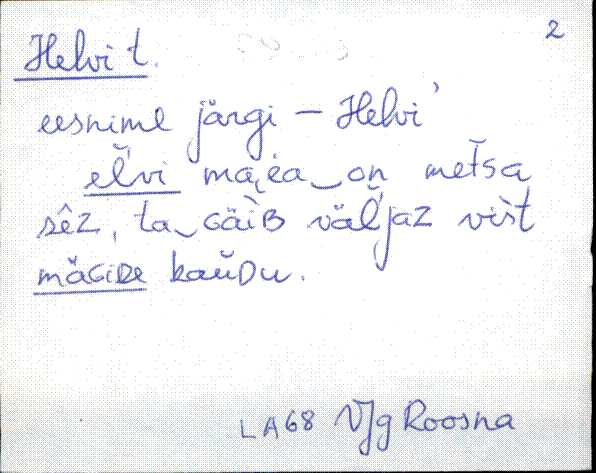 2
Helvi t.
eesnime järgi – Helvi'
el̆vi maja‿on met̆sa
sêz, ta‿GäìB väl̆jaz vis̆t
mäGiDe kaŭDu.
LA68 VJg Roosna